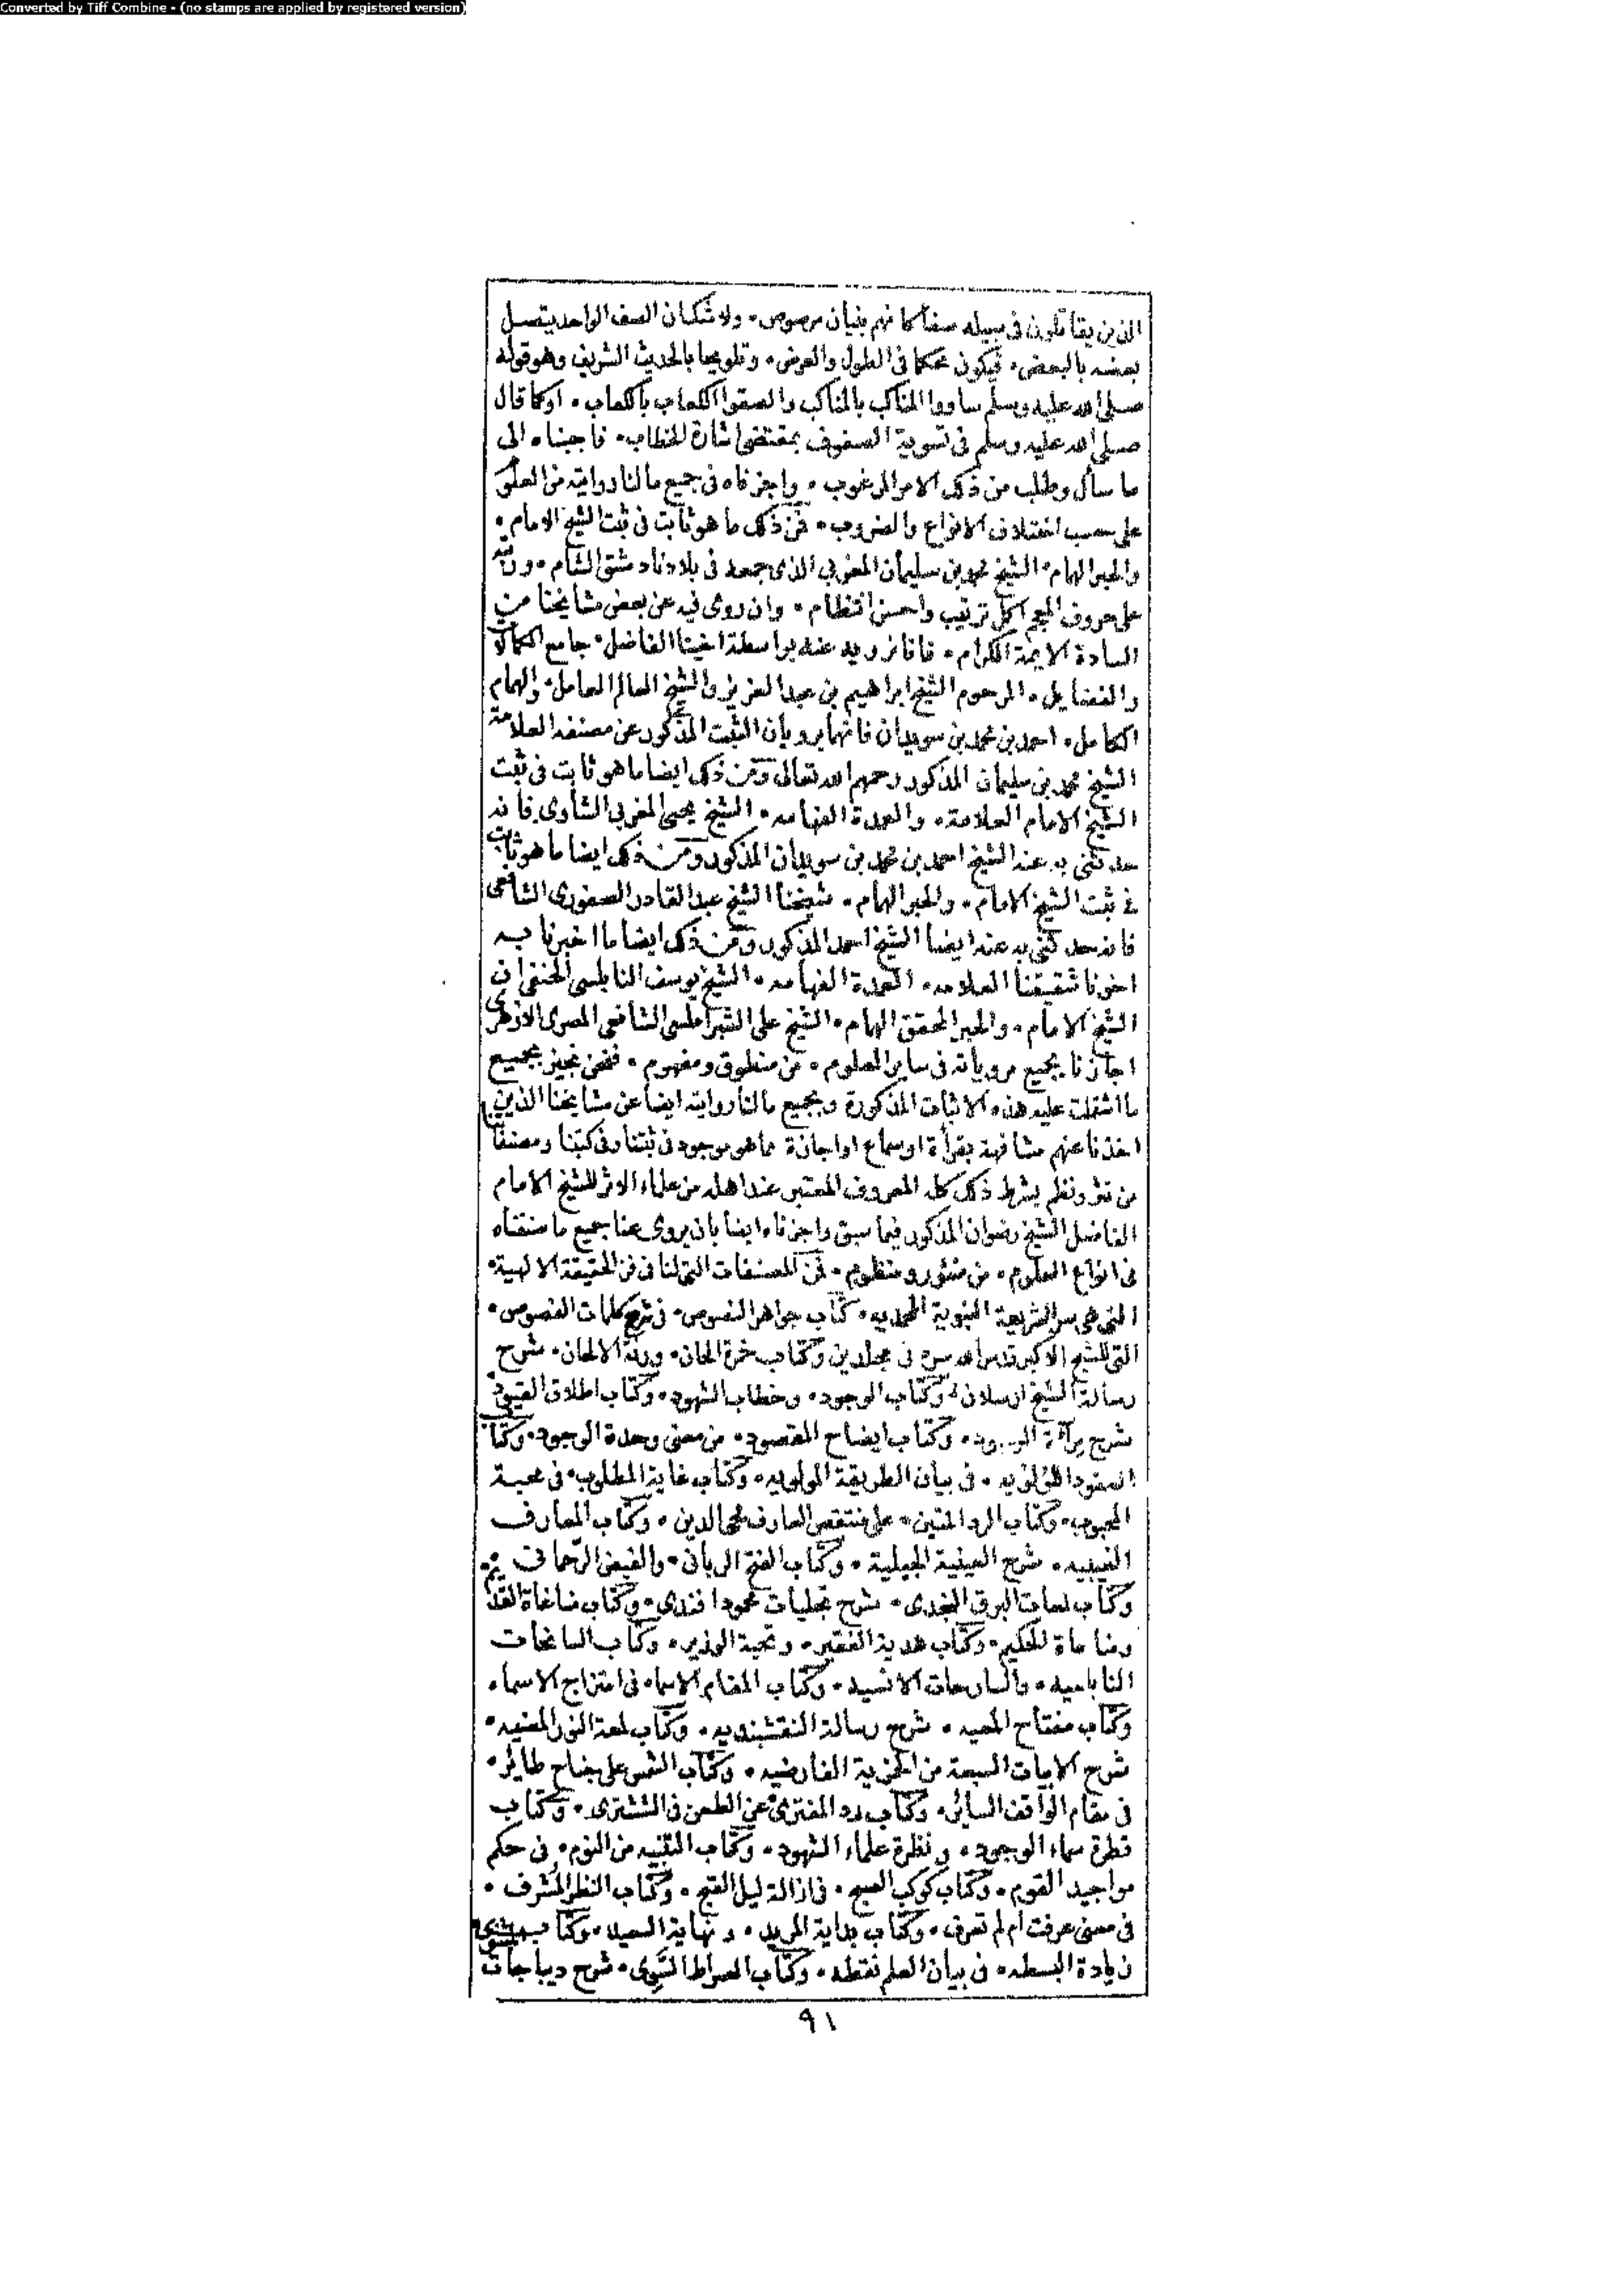 Converted by Tiff Combine - (no stamps are applied by registered version)
الذين يقاتلون في سبيله صفا كانهم بنيان مرصوص ولا شك ان الصف الواحد يتصل
بعضه بالبعض فيكون محكما في الطول والعرض وتلويحا بالحديث الشريف وهو قوله
صلى الله عليه وسلم ساووا المناكب بالمناكب والصقوا الكعاب بالكعاب اوكما قال
صلى الله عليه وسلم في تسوية الصفوف بمقتضى اشارة الخطاب فاجبناه الى
ما سأل وطلب من ذلك الامر المرغوب واجزناه في جميع ما لنا روايته من العلوم
على حسب اختلاف الانواع والضروب فمن ذلك ما هو ثابت في ثبت الشيخ الامام
والحبر الهمام الشيخ محمد بن سليمان المغربي الذي جمعه في بلادنا دمشق الشام ورتبه
على حروف المعجم اكمل ترتيب واحسن انتظام وان روى فيه عن بعض مشايخنا من
السادة الايمة الكرام فانا نرويه عنه بواسطة اخينا الفاضل جامع الكمالات
والفضايل المرحوم الشيخ ابراهيم بن عبد العزيز والشيخ العالم العامل والهمام
الكامل احمد بن محمد بن سويدان فانهما يرويان الثبت المذكور عن مصنفه العلامة
الشيخ محمد بن سليمان المذكور رحمهم الله تعالى ومن ذلك ايضا ما هو ثابت في ثبت
الشيخ الامام العلامة والعمدة الفهامه الشيخ يحيى المغربي الشاوي فانه
حدثني به عنه الشيخ احمد بن محمد بن سويدان المذكور ومن ذلك ايضا ما هو ثابت
في ثبت الشيخ الامام والحبر الهمام شيخنا الشيخ عبد القادر الصفوري الشافعي
فانه حدثني به عنه ايضا الشيخ احمد المذكور ومن ذلك ايضا ما اخبرنا به
اخونا شقيقنا العلامه العمدة الفهامه الشيخ يوسف النابلسي الحنفي ان
الشيخ الامام والحبر المحقق الهمام الشيخ علي الشبراملسي الشافعي المصري الازهري
اجازنا بجميع مروياته في ساير العلوم من منطوق ومفهوم فنحن نجيز بجميع
ما اشتملت عليه هذه الاثبات المذكورة وبجميع ما لنا روايته ايضا عن مشايخنا الذين
اخذنا عنهم مشافهة بقرأة او سماع او اجازة مما هو موجود في ثبتنا وفي كتبنا ومصنفاتنا
من نثر ونظم بشرط ذلك كله المعروف المعتبر عند اهله من علماء الاثر للشيخ الامام
الفاضل الشيخ رضوان المذكور فيما سبق واجزناه ايضا بان يروى عنا جميع ما صنفناه
في انواع العلوم من منثور ومنظوم فمن المصنفات التي لنا في فن الحقيقة الالهية
التي هي سر الشريعة النبوية المحمديه كتاب جواهر النصوص في شرح كلمات الفصوص
التي للشيخ الاكبر قدس الله سره في مجلدين وكتاب خمرة الحان ورنة الالحان شرح
رسالة الشيخ ارسلان وكتاب الوجود وخطاب الشهود وكتاب اطلاق القيود
شرح مرآة الوجود وكتاب ايضاح المقصود من معنى وحدة الوجود وكتاب
العقود اللؤلؤيه في بيان الطريقة المولويه وكتاب غاية المطلوب في محبة
المحبوب وكتاب الرد المتين على منتقص العارف محيي الدين وكتاب المعارف
الغيبيه شرح العينية الجيلية وكتاب الفتح الرباني والفيض الرحماني
وكتاب لمعات البرق النجدي شرح تجليات محمود افندي وكتاب مناغاة القديم
ومناجاة الحكيم وكتاب هدية الفقير وتحية الوزير وكتاب السانحات
النابلسيه والسارحات الانسيه وكتاب المقام الاسماء في امتزاج الاسماء
وكتاب مفتاح المعيه شرح رسالة النقشبنديه وكتاب لمعة النور المضيه
شرح الابيات السبعة من الخمرية الفارضيه وكتاب الشمس على جناح طائر
في مقام الواقف السائر وكتاب رد المفترى عن الطعن في الششترى وكتاب
قطرة سماء الوجود ونظرة علماء الشهود وكتاب التنبيه من النوم في حكم
مواجيد القوم وكتاب كوكب الصبح في ازالة ليل القبح وكتاب النظر المشرف
في معنى عرفت ام لم تعرف وكتاب بداية المريد ونهاية السعيد وكتاب
زيادة البسطه في بيان العلم نقطه وكتاب الصراط السوى شرح ديباجات
٩١